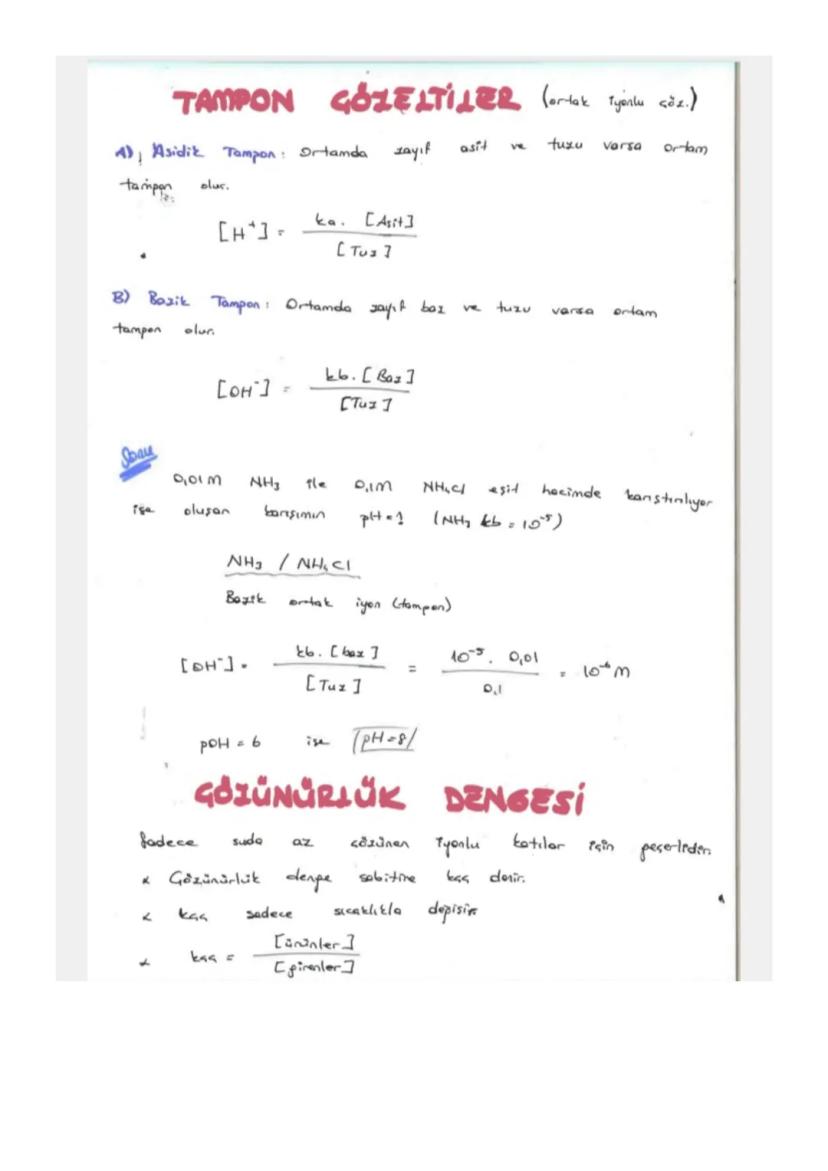 TAMPON ÇÖZELTİLER (ortak iyonlu çöz.)
A) Asidik Tampon: Ortamda zayıf asit ve tuzu varsa ortam
tampon olur.
[H⁺] = ka. [Asit] / [Tuz]
B) Bazik Tampon: Ortamda zayıf baz ve tuzu varsa ortam
tampon olur.
[OH⁻] = kb. [Baz] / [Tuz]
Soru
0,01M NH₃ ile 0,1M NH₄Cl eşit hacimde karıştırılıyor
ise oluşan karışımın pH=? (NH₃ kb = 10⁻⁵)
NH₃ / NH₄Cl
Bazik ortak iyon (tampon)
[OH⁻] = kb. [baz] / [Tuz] = 10⁻⁵. 0,01 / 0,1 = 10⁻⁶ M
pOH = 6 ise pH=8
ÇÖZÜNÜRLÜK DENGESİ
Sadece suda az çözünen iyonlu katılar için geçerlidir.
* Çözünürlük denge sabitine kçç denir.
* kçç sadece sıcaklıkla değişir
* kçç = [ürünler] / [girenler]